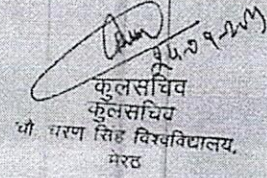 कुलसचिव
कुलसचिव
चौ० चरण सिंह विश्वविद्यालय,
मेरठ